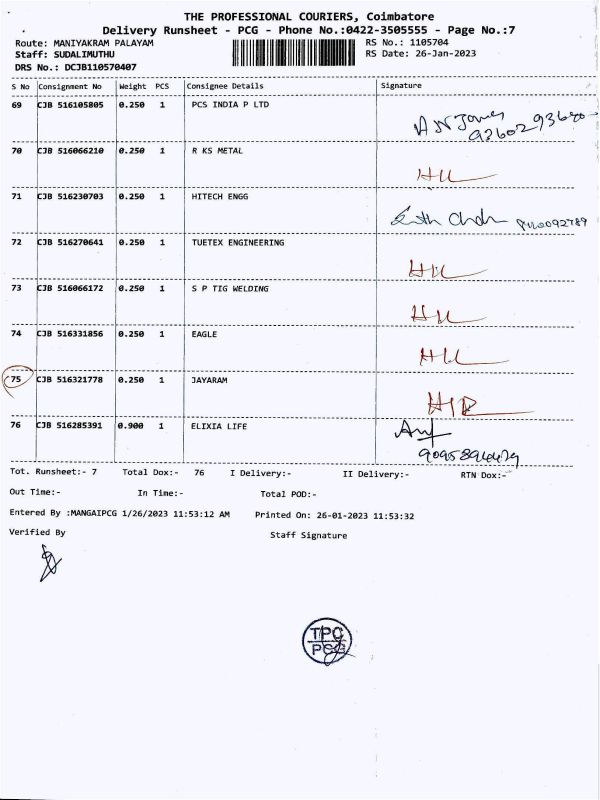 THE PROFESSIONAL COURIERS, Coimbatore
Delivery Runsheet - PCG - Phone No.:0422-3505555 - Page No.:7
Route: MANIYAKRAM PALAYAM RS No.: 1105704
Staff: SUDALIMUTHU RS Date: 26-Jan-2023
DRS No.: DCJB110570407
S No Consignment No Weight PCS Consignee Details Signature
69 CJB 516105805 0.250 1 PCS INDIA P LTD
70 CJB 516066210 0.250 1 R KS METAL
71 CJB 516230703 0.250 1 HITECH ENGG
72 CJB 516270641 0.250 1 TUETEX ENGINEERING
73 CJB 516066172 0.250 1 S P TIG WELDING
74 CJB 516331856 0.250 1 EAGLE
75 CJB 516321778 0.250 1 JAYARAM
76 CJB 516285391 0.900 1 ELIXIA LIFE
Tot. Runsheet:- 7 Total Dox:- 76 I Delivery:- II Delivery:- RTN Dox:-
Out Time:- In Time:- Total POD:-
Entered By :MANGAIPCG 1/26/2023 11:53:12 AM Printed On: 26-01-2023 11:53:32
Verified By Staff Signature
TPC
PCG